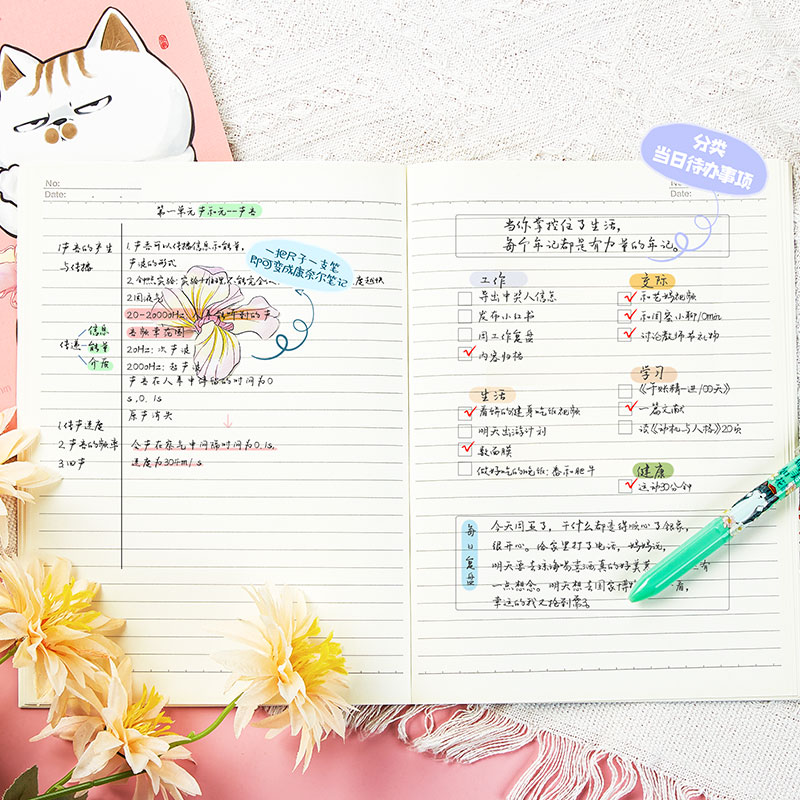 No:
Date:
第一单元 声和元--声音
1声音的产生
与传播
1.声音可以传播信息和能量,
声波的形式
一把尺子一支笔
即可变成康奈尔笔记
2.
度越快
2.固液气
20-20000Hz: 人耳能听到的声
音频率范围
信息
传递-能量
介质
20Hz: 次声波
2000Hz: 超声波
声音在人耳中
的时间为0
s.0.1s
原声消失
1.传声速度
2.声音的频率
3.回声
令声在空气中间隔时间为0.1s.
速度为304m/s
No:
Date:
分类
当日待办事项
当你掌控住了生活,
每个年记都是有力量的年记。
工作
导出中奖人信息
发布小红书
周工作复盘
内容归档
生活
看帅的健身吃饭视频
明天出游计划
敷面膜
做好吃的晚饭: 番茄肥牛
交际
和艺妈视频
和闺蜜小聊10min
讨论教师节礼物
学习
《干账精一进100天》
一篇文献
读《动机与人格》20页
健康
运动30分钟
每日复盘
今天周五了, 干什么都变得顺心了很多,
很开心。给家里打了电话, 妈妈说,
明天要去
真的好美
有
一点想念。明天想去国家博
看,
幸运的我又抢到票了